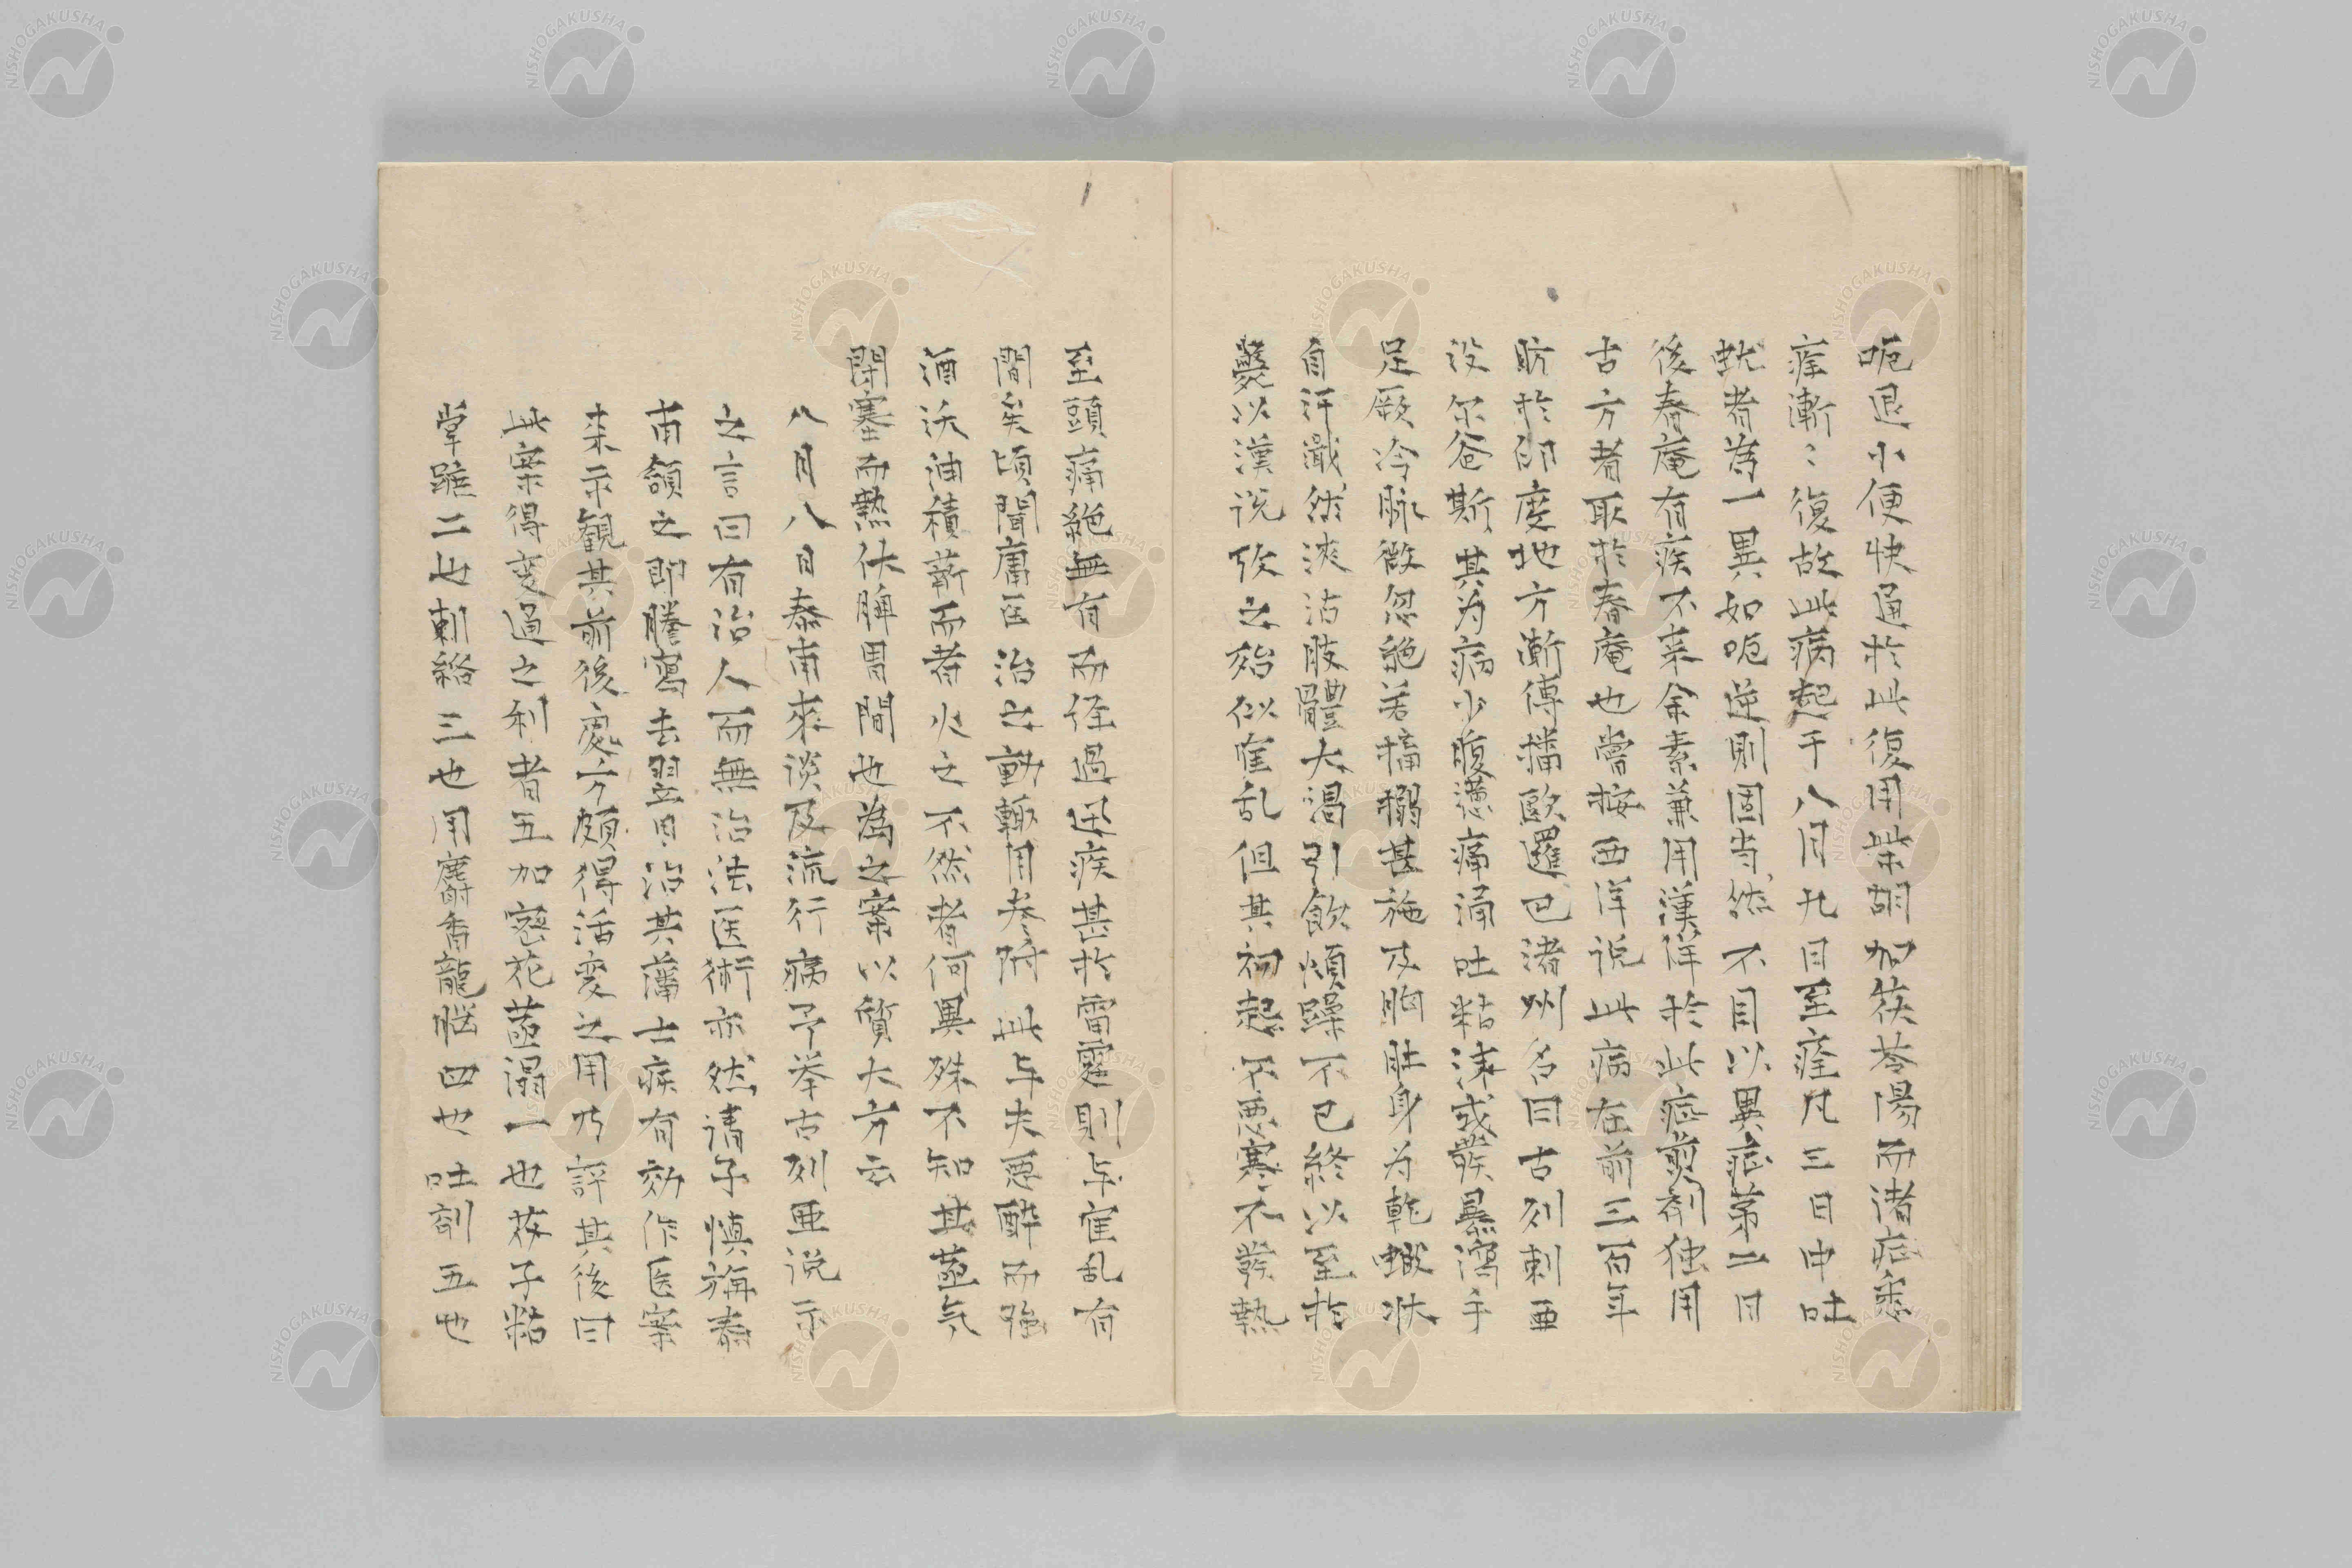 呃退小便快通於此復用柴胡加茯苓湯而諸症悉
痊漸〻復故此病起于八月九日至痊凡三日中吐
蚘者為一異如呃逆則固当然不目以異症第二日
後春庵有疾不来余素兼用漢洋於此症煎剤独用
古方者取於春庵也嘗按西洋説此病在前三百年
昉於印度地方漸傳播歐邏巴諸州名曰古列剌亜
没尔爸斯其为病少腹懣痛涌吐粘沫或發暴瀉手
足厥冷脉微忽絶若搐搦甚施及胸肚身为乾蠟状
自汗濈然浹沾肢體大渇引飲煩躁不已終以至於
斃以漢说攷之殆似霍乱但其初起不悪寒不發熱
至頭痛絶無有而径過迅疾甚於雷霆則与霍乱有
間矣頃聞庸医治之動輙用参附此与夫悪酔而強
酒沃油積薪而待火之不然者何異殊不知其蘊気
閉塞而熱伏脾胃間也為之案以質大方云
八月八日泰甫来談及流行病予挙古列亜说示
之言曰有治人而無治法医術亦然請子慎旃泰
甫頷之即謄寫去翌日治其藩士疾有効作医案
来示観其前後處方頗得活変之用乃評其後曰
此案得変通之利者五加密花蒀溻一也芥子粘
掌蹠二也刺絡三也用麝香龍脳四也吐剤五也